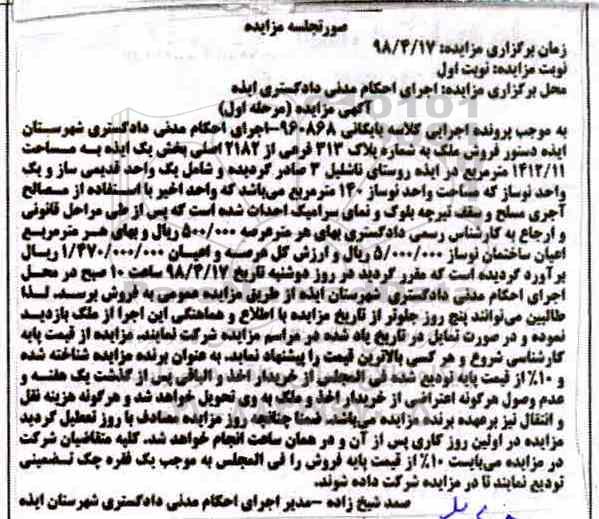 صورتجلسه مزایده
زمان برگزاری مزایده: ۹۸/۴/۱۷
نوبت مزایده: نوبت اول
محل برگزاری مزایده: اجرای احکام مدنی دادگستری ایذه
آگهی مزایده (مرحله اول)
به موجب پرونده اجرایی کلاسه بایگانی ۹۶۰۸۶۸-اجرای احکام مدنی دادگستری شهرستان
ایذه دستور فروش ملک به شماره پلاک ۳۱۳ فرعی از ۲۱۸۲ اصلی بخش یک ایذه به مساحت
۱۴۱۲/۱۱ مترمربع در ایذه روستای تاشلیل ۳ صادر گردیده و شامل یک واحد قدیمی ساز و یک
واحد نوساز که مساحت واحد نوساز ۱۴۰ مترمربع می‌باشد که واحد اخیر با استفاده از مصالح
آجری مسلح و سقف تیرچه بلوک و نمای سرامیک احداث شده است که پس از طی مراحل قانونی
و ارجاع به کارشناس رسمی دادگستری بهای هر مترعرصه ۵۰۰/۰۰۰ ریال و بهای هر مترمربع
اعیان ساختمان نوساز ۵/۰۰۰/۰۰۰ ریال و ارزش کل عرصه و اعیان ۱/۴۷۰/۰۰۰/۰۰۰ ریال
برآورد گردیده است که مقرر گردید در روز دوشنبه تاریخ ۹۸/۴/۱۷ ساعت ۱۰ صبح در محل
اجرای احکام مدنی دادگستری شهرستان ایذه از طریق مزایده عمومی به فروش برسد. لذا
طالبین می‌توانند پنج روز جلوتر از تاریخ مزایده با اطلاع و هماهنگی این اجرا از ملک بازدید
نموده و در صورت تمایل در تاریخ یاد شده در مراسم مزایده شرکت نمایند. مزایده از قیمت پایه
کارشناسی شروع و هر کسی بالاترین قیمت را پیشنهاد نماید. به عنوان برنده مزایده شناخته شده
و ۱۰٪ از قیمت پایه تودیع شده فی المجلس از خریدار اخذ و الباقی پس از گذشت یک هفته و
عدم وصول هرگونه اعتراضی از خریدار اخذ و ملک به وی تحویل خواهد شد و هرگونه هزینه نقل
و انتقال نیز برعهده برنده مزایده می‌باشد. ضمنا چنانچه روز مزایده مصادف با روز تعطیل گردید
مزایده در اولین روز کاری پس از آن و در همان ساعت انجام خواهد شد. کلیه متقاضیان شرکت
در مزایده می‌بایست ۱۰٪ از قیمت پایه فروش را فی المجلس به موجب یک فقره چک تضمینی
تودیع نمایند تا در مزایده شرکت داده شوند.
صمد شیخ زاده -مدیر اجرای احکام مدنی دادگستری شهرستان ایذه